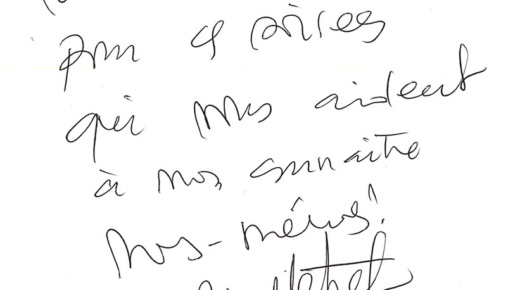 pour soirées
qui nous aident
à nous connaître
nous-mêmes!